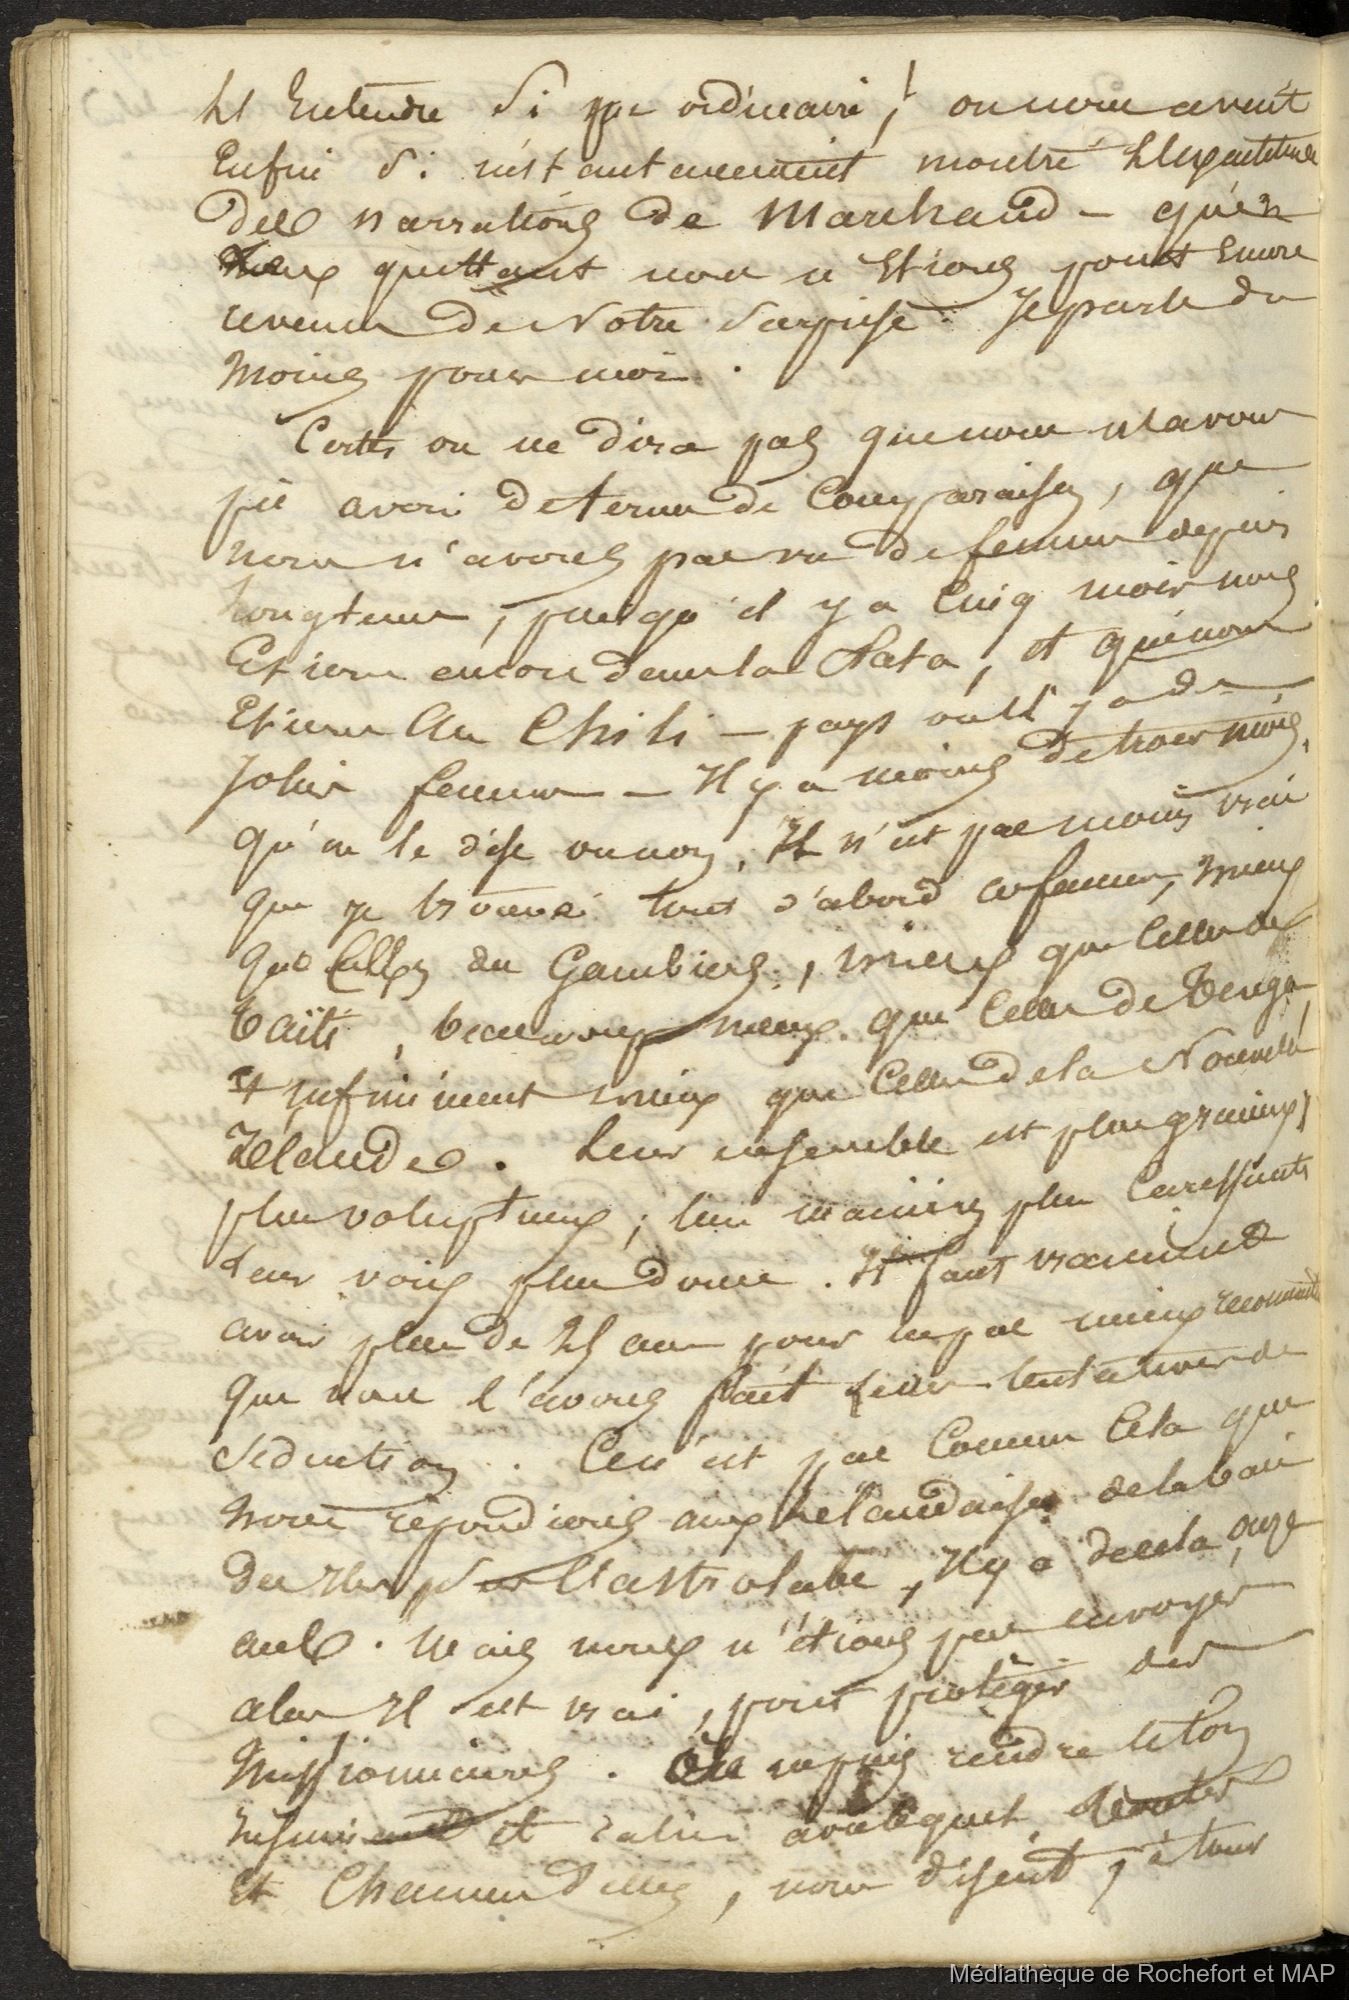 Et Entendre si peu ordinaire, on nous avait
Enfin si instantanement montré l'exactitude
des narrations de Marchand – qu'en
quittant nous n'étions point Encore
revenu de Notre Surprise. Je parle du
Moins pour moi.
Certes on ne dira pas que nous n'avons
pû avoir de terme de Comparaison, que
nous n'avons pas vu de femmes depuis
Longtems, puisqu'il y a Cinq mois nous
Etions encore dans la Plata, et que nous
Etions au Chili – pays où il y a de
Jolies femmes – Il y a moins de trois mois,
qu'on le dise ou non, Il n'est pas moins vrai
que je trouvai tout d'abord ces femmes, mieux
que Celles des Gambiers, mieux que Celles de
Taïti, beaucoup mieux que Celles de Tonga,
et infiniment mieux que Celles de la Nouvelle
Zélande. Leur ensemble est plus gracieux,
plus voluptueux; leurs manières plus Caressantes
Leur voix plus douce. Il faut vraiment
avoir plus de ans pour ne pas mieux
que nous l'avons fait leurs tentatives de
Séduction. Ce n'est pas Comme Cela que
nous répondions aux Zelandaises de la baie
des Iles sur L'astrolabe, Il y a de cela onze
ans. Mais nous n'étions pas envoyés
alors Il est vrai, pour protéger des
Missionnaires. On ne puis rendre le ton
et calin avec lequel
Et Chacune d'elles, nous disent, à tour